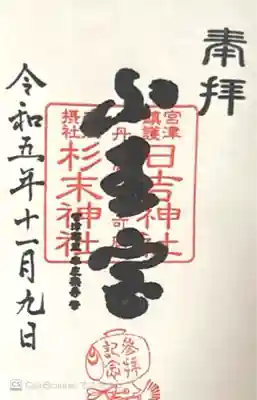 奉拝
山王宮
宮津
鎮護
日吉神社
摂社
杉末神社
令和五年十一月九日
参拝
記念
CamScanner